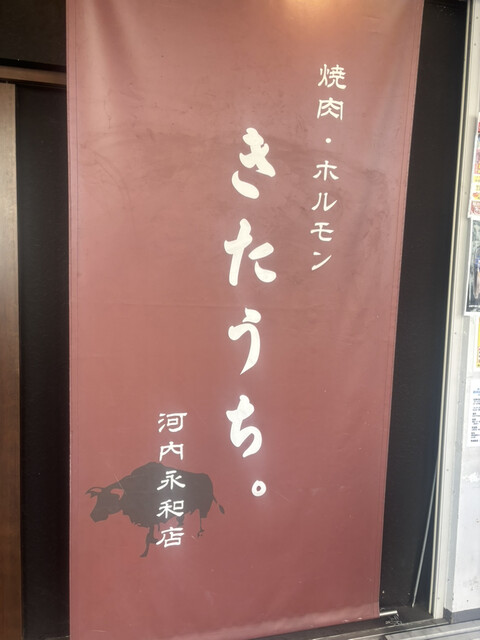 焼肉・ホルモン
きたうち。
河内永和店